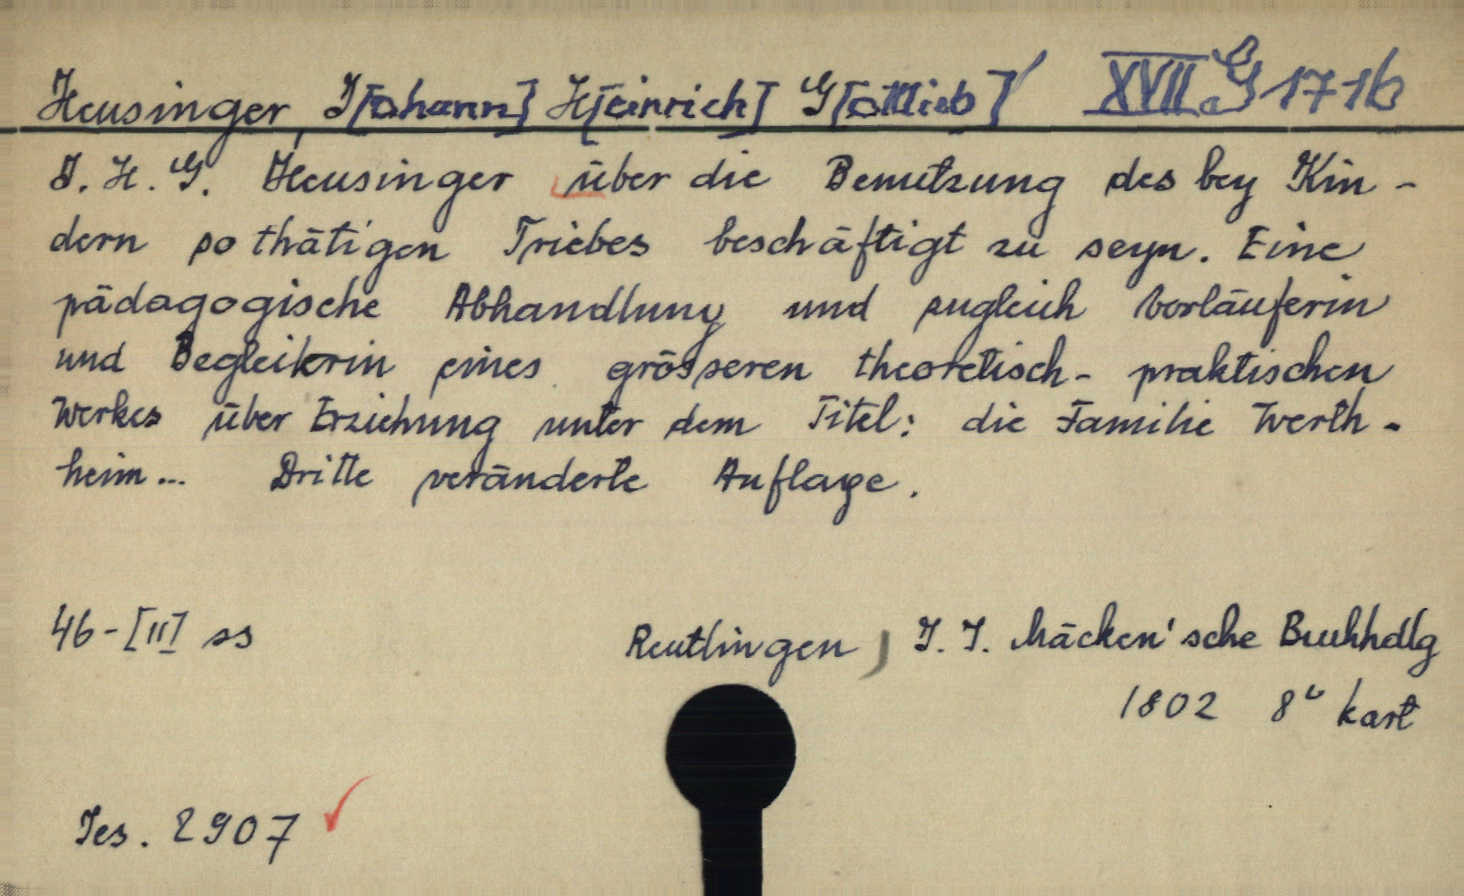 Heusinger, J[ohann] H[einrich] G[ottlieb] XVII G 1716
J. H. G. Heusinger über die Benutzung des bey Kin-
dern so thätigen Triebes beschäftigt zu seyn. Eine
pädagogische Abhandlung und zugleich Vorläuferin
und Begleiterin eines grösseren theoretisch-praktischen
Werkes über Erziehung unter dem Titel: die Familie Werth-
heim... Dritte veränderte Auflage.
46-[II] ss
Reutlingen, J. J. Mäcken'sche Buchhdlg
1802 8° kart
Jes. 2907